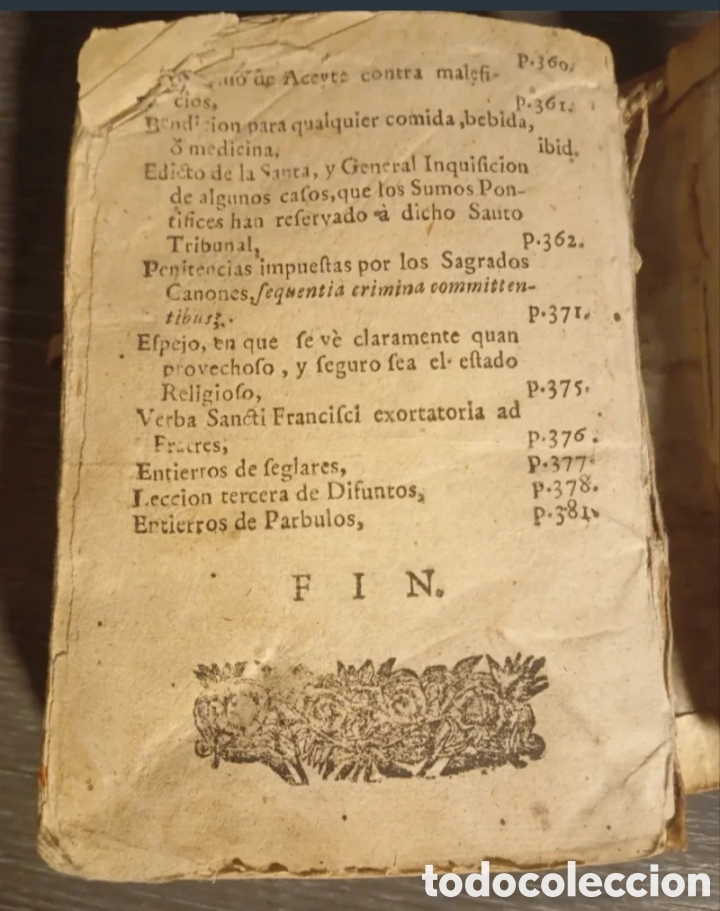 de Aceyte contra malefi- p.360.
cios, p.361.
Bendicion para qualquier comida, bebida,
ò medicina, ibid.
Edicto de la Santa, y General Inquiſicion
de algunos caſos, que los Sumos Pon-
tifices han reſervado à dicho Santo
Tribunal, p.362.
Penitencias impueſtas por los Sagrados
Canones, ſequentia crimina committen-
tibus. p.371.
Eſpejo, en que ſe vè claramente quan
provechoſo, y ſeguro ſea el eſtado
Religioſo, p.375.
Verba Sancti Franciſci exortatoria ad
Fratres, p.376.
Entierros de ſeglares, p.377.
Leccion tercera de Difuntos, p.378.
Entierros de Parbulos, p.381.
FIN.
todocoleccion